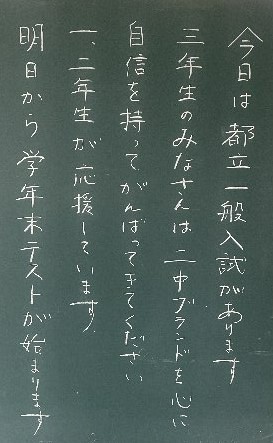 今日は都立一般入試があります
三年生のみなさんは二中ブランドを心に
自信を持ってがんばってきてください
一、二年生が応援しています。
明日から学年末テストが始まります